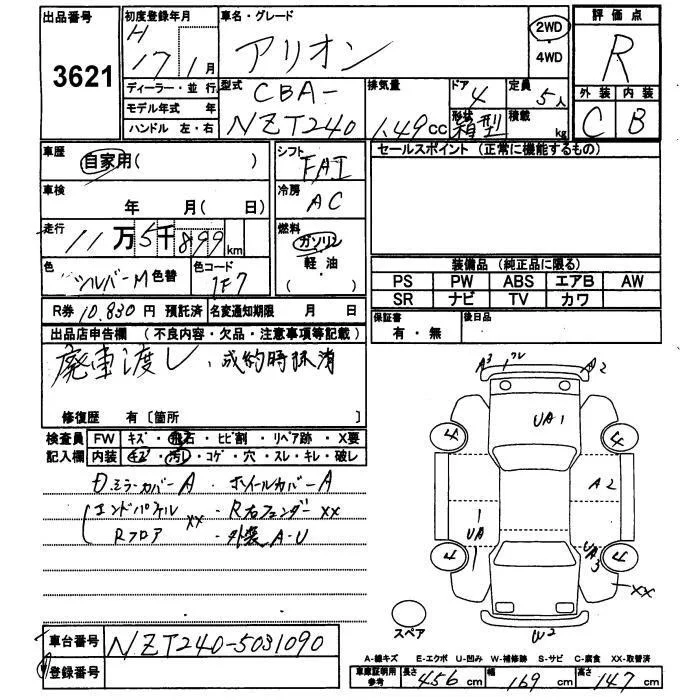 出品番号
3621
初度登録年月
H 17 1月
ディーラー・並行
モデル年式 年
ハンドル 左・右
車名・グレード
アリオン
2WD
4WD
評価点
R
型式
CBA-
NZT240
排気量
1.49cc
ドア
4
形状
箱型
定員
5人
積載
kg
外装 内装
C B
車歴
自家用( )
車検
年 月( 日)
走行
11万5千899km
色
シルバーM 色替
色コード
1F7
R券 10.830円 預託済
名変通知期限 月 日
シフト
FAT
冷房
AC
燃料
ガソリン
軽・油
( )
セールスポイント (正常に機能するもの)
装備品 (純正品に限る)
PS PW ABS エアB AW
SR ナビ TV カワ
保証書
有・無
後日品
出品店申告欄 (不良内容・欠品・注意事項等記載)
廃車渡し、成約時抹消
修復歴 有〔箇所 〕
検査員 FW キズ・飛石・ヒビ割・リペア跡・X要
記入欄 内装 キズ・汚レ・コゲ・穴・スレ・キレ・破レ
ミラーカバーA ・ホイールカバーA
エンドパネル XX ・R右フェンダーXX
Rフロア ・外装A-U
A3
A2
UA1
4
4
A2
UA
1
4
4
UA3
XX
W2
スペア
車台番号 NZT240-5031090
登録番号
A-線キズ E-エクボ U-凹み W-補修跡 S-サビ C-腐食 XX-取替済
車庫証明用
参考
長さ 456cm 幅 169cm 高さ 147cm